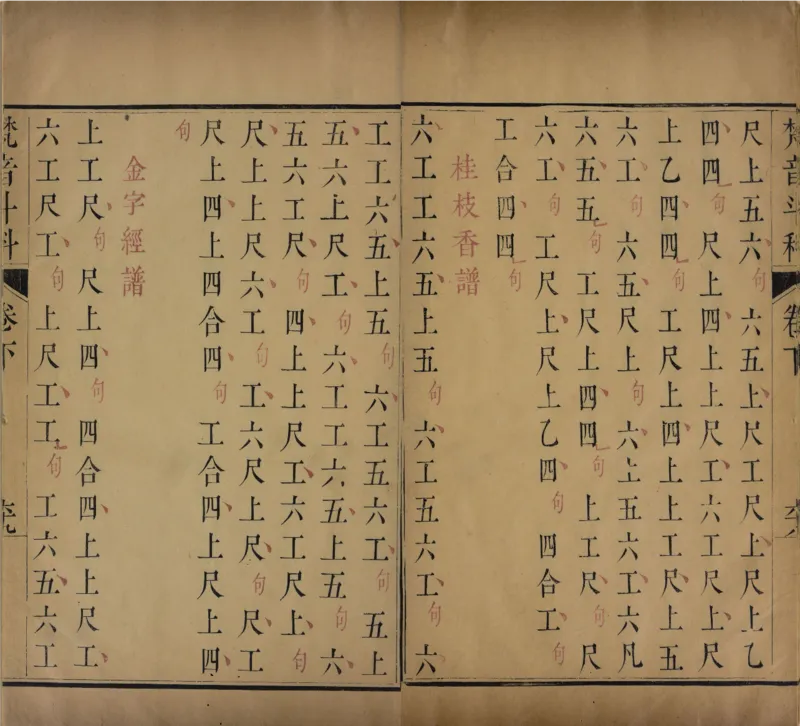 梵音斗科 卷下
尺上五六句六五上尺工尺上尺上乙
四四句尺上四上上尺工六工尺上尺
上乙四四句工尺上四上上工尺上五
六工句六五尺上句六上五六工六凡
六五五句工尺上四四句上工尺句尺
六工句工尺上尺上乙四句四合工句
工合四四句
桂枝香譜
六工工六五上五句六工五六工句六
工工六五上五句六工五六工句五上
五六上尺工句六工六五上五句六
五六工尺句四上上尺工六工尺上句
尺上上尺六工句工六尺上尺句尺工
尺上四上四合四句工合四上尺上四
句
金字經譜
上工尺句尺上四句四合四上上尺工
六工尺工句上尺工工句工六五六工
梵音斗科 卷下